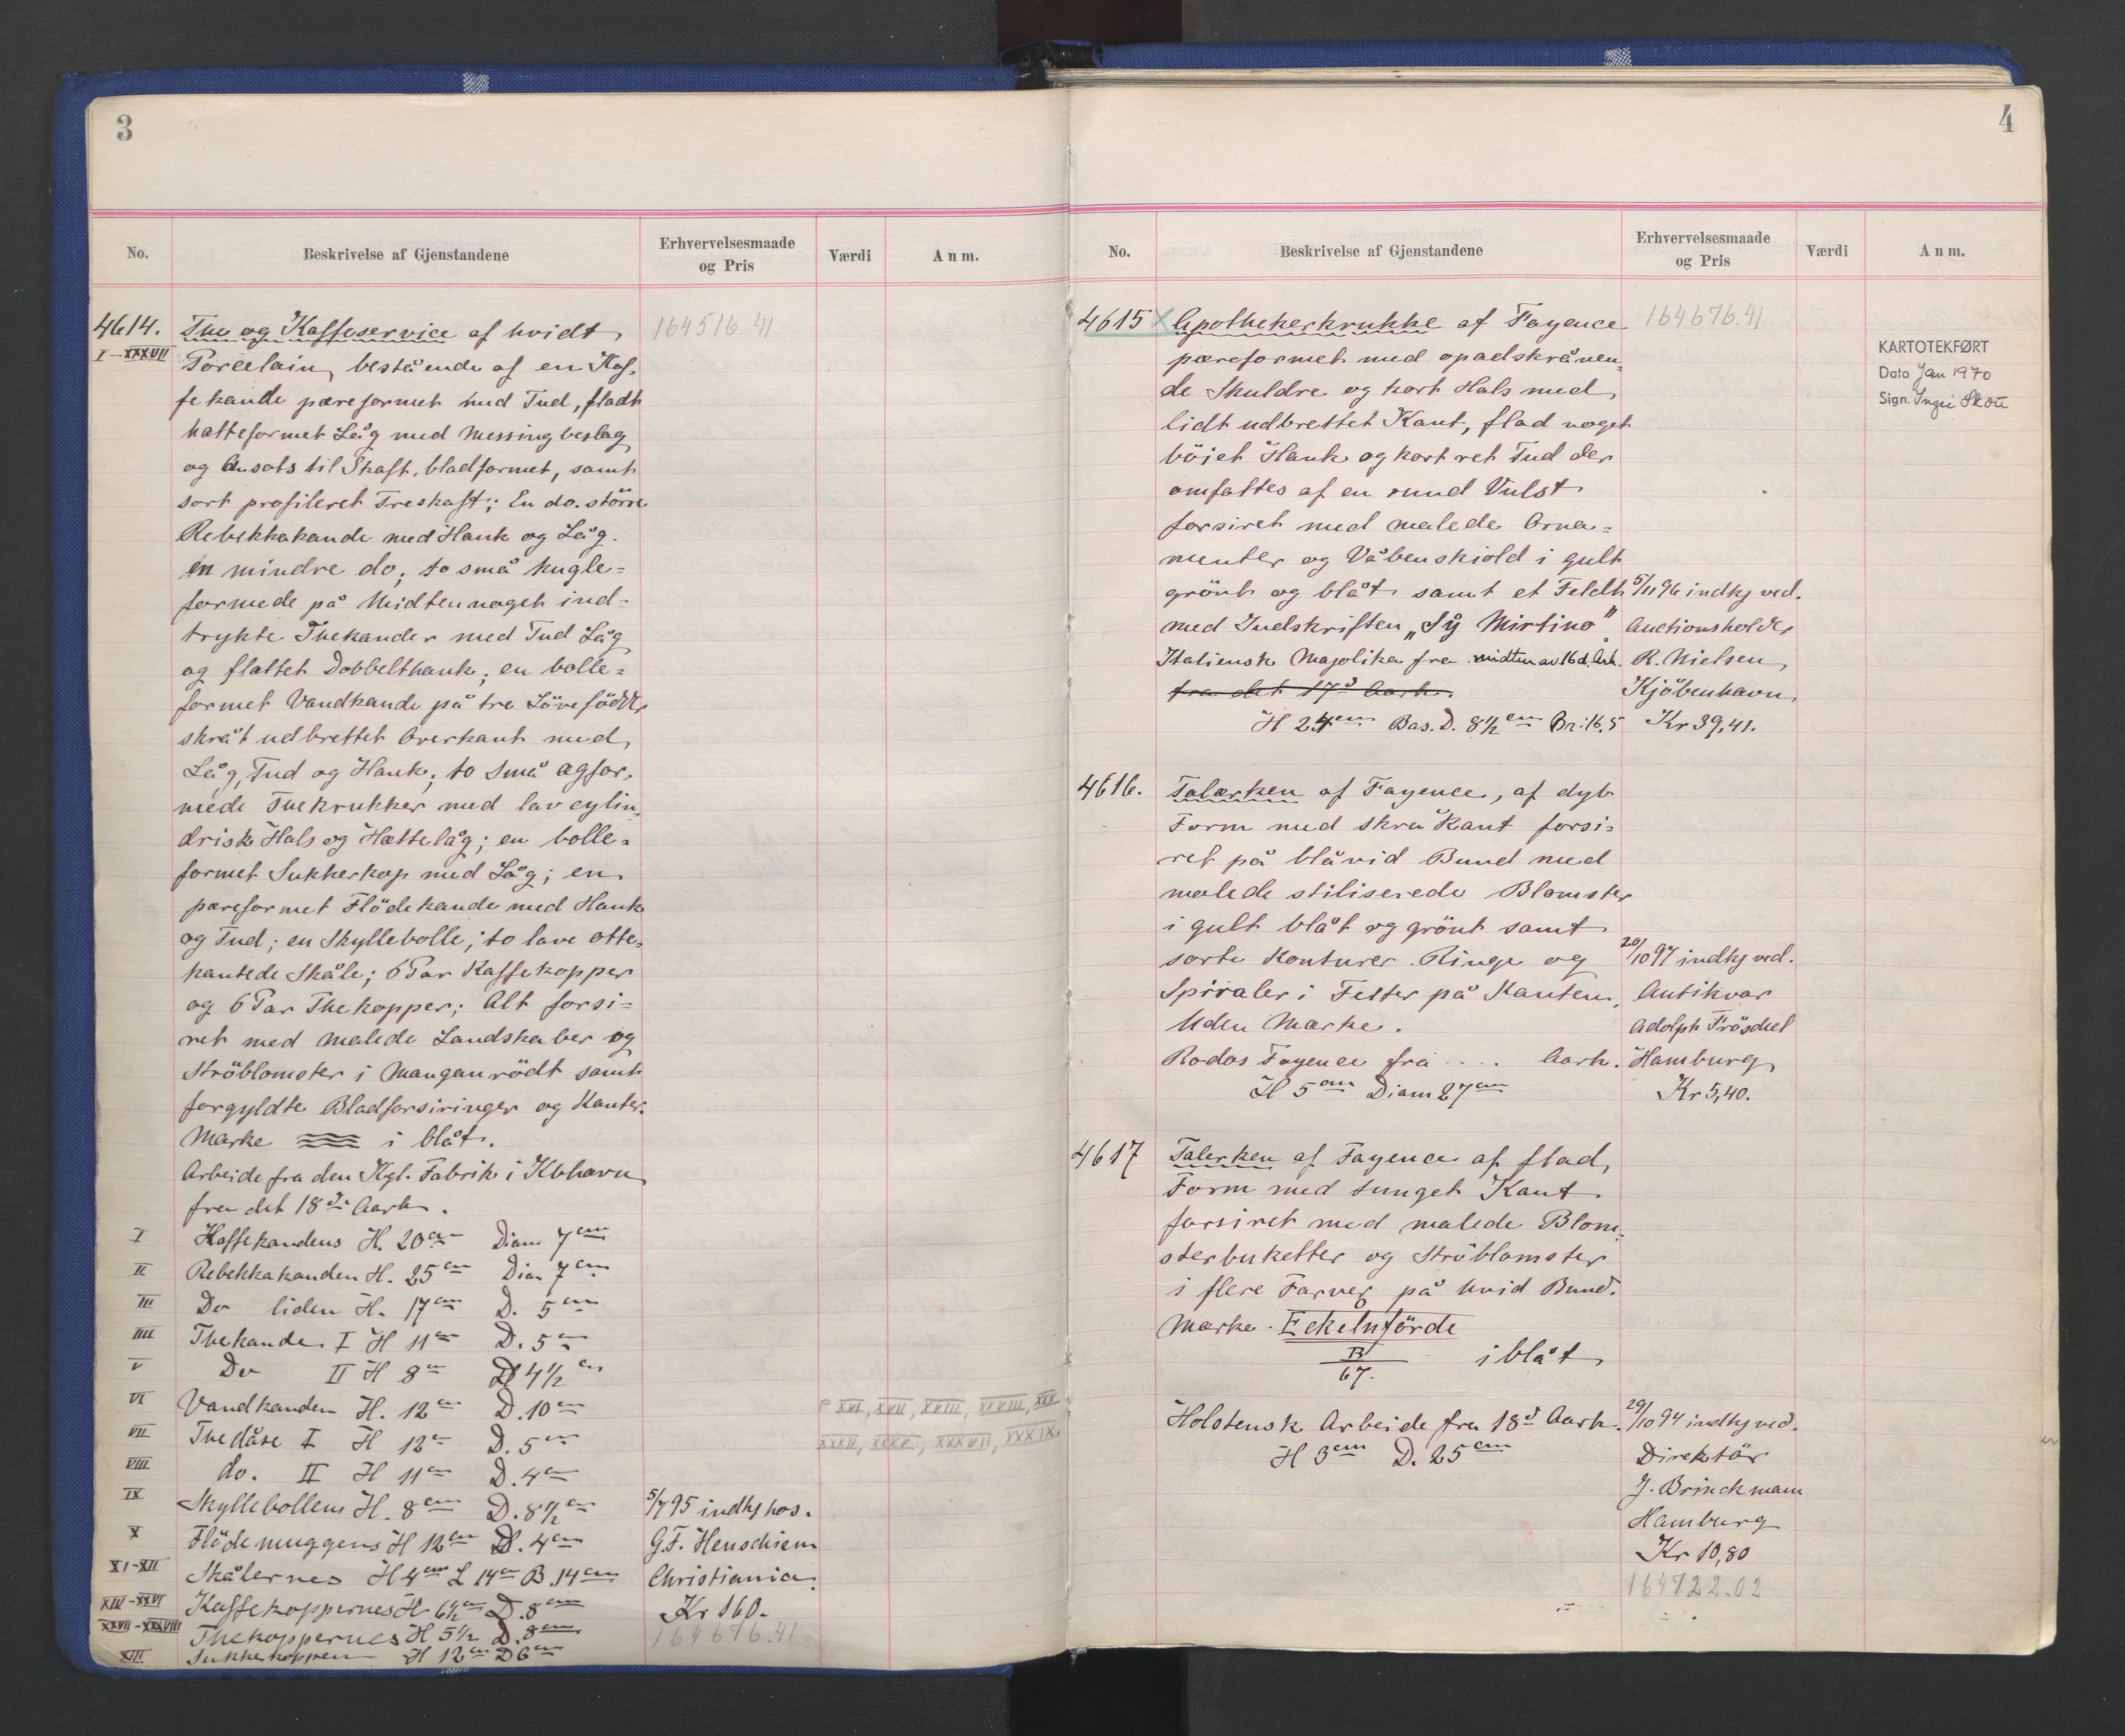 3
No.
Beskrivelse af Gjenstandene
Erhvervelsesmaade
og Pris
Værdi
Anm.
4614.
I-XXXVII
The og Kaffeservice af hvidt
164516.41
Porcelain, bestående af en Kaf-
fekande pæreformet med Tud, fladt
hatteformet Låg med Messingbeslag
og Ansats til Skaft, bladformet, samt
sort profileret Treskaft; En do. större
Rebekkakande med Hank og Låg.
en mindre do; to små kugle=
formede på Midten noget ind=
trykte Thekander med Tud Låg
og flattet Dobbelthank; en bolle=
formet Vandkande på tre Lövefödder
skråt udbrettet Overkant med
Låg, Tud og Hank; to små ægfor-
mede Thekrukker med lav cylin-
drisk Hals og Hættelåg; en bolle=
formet Sukkerkop med Låg; en
pæreformet Flödekande med Hank
og Tud; en Skyllebolle; to lave otte-
kantede Skåle; 6 Par Kaffekopper
og 6 Par Thekopper; Alt forsi=
ret med malede Landskaber og
Ströblomster i Manganrödt samt
forgyldte Bladforsiringer og Kanter.
Mærke i blåt.
Arbeide fra den Kgl. Fabrik i Kbhavn
fra det 18de Aarh.
I Kaffekandens H. 20cm Diam 7cm
II Rebekkakanden H. 25cm Diam 7cm
III Do liden H. 17cm D. 5cm
IIII Thekande I H 11cm D. 5cm
V Do II H 8cm D 4½cm
VI Vandkanden H. 12cm D. 10cm
VII Thedåse I H 12cm D. 5cm
VIII do. II H 11cm D. 4cm
IX Skyllebollens H. 8cm D. 8½cm
X Flödemuggens H 12cm D. 4cm
XI-XII Skålernes H 4cm L 14cm B. 14cm
XIV-XXVI Kaffekoppernes H. 6½cm D. 8cm
XXVII-XXXVIII Thekoppernes H 5½ D. 8cm
XIII Sukkerkoppen H 12cm D 6cm
XVI, XVII, XXIII, XXVIII, XXX
XXXII, XXXV, XXXVII, XXXIX
5/7 95 indkj hos.
G.F. Henschiem
Christiania.
Kr 160.
164676.41
4
No.
Beskrivelse af Gjenstandene
Erhvervelsesmaade
og Pris
Værdi
Anm.
4615 X Apothekerkrukke af Fayence
164676.41
KARTOTEKFØRT
Dato Jan 1970
Sign. Inger Skou
pæreformet med opadskrånen=
de Skuldre og kort Hals med
lidt udbrettet Kant, flad noget
böiet Hank og kort ret Tud der
omfattes af en rund Vulst
forsiret med malede Orna=
menter og Våbenskiold i gult
grönt og blåt samt et Feldt
med Indskriften „Sÿ Mirtino”
Italiensk Majolika fra midten av 16d. Årh.
fra det 17d Aarh.
H 24cm Bas. D. 8½cm Br: 16,5
5/11 96 indkj ved.
Auctionsholder
R. Nielsen,
Kjöbenhavn,
Kr 39,41.
4616. Talærken af Fayence, af dyb
Form med skrå Kant forsi=
ret på blåvid Bund med
malede stiliserede Blomster
i gult blåt og grönt samt
sorte Konturer. Ringe og
Spiraler i Felter på Kanten,
Uden Mærke.
Rodos Fayence fra .... Aarh.
H 5cm Diam 27cm
20/10 94 indkj ved.
Antikvar
Adolph Frösdiel
Hamburg
Kr 5,40.
4617 Talerken af Fayence af flad,
Form med tunget Kant
forsiret med malede Blom-
sterbuketter og Ströblomster
i flere Farver på hvid Bund.
Mærke. Eckelnförde
B
67.
i blåt
Holstensk Arbeide fra 18d Aarh.
H 3cm D. 25cm
29/10 94 indkj ved.
Direktör
J. Brinckmann
Hamburg
Kr 10,80
164722.02